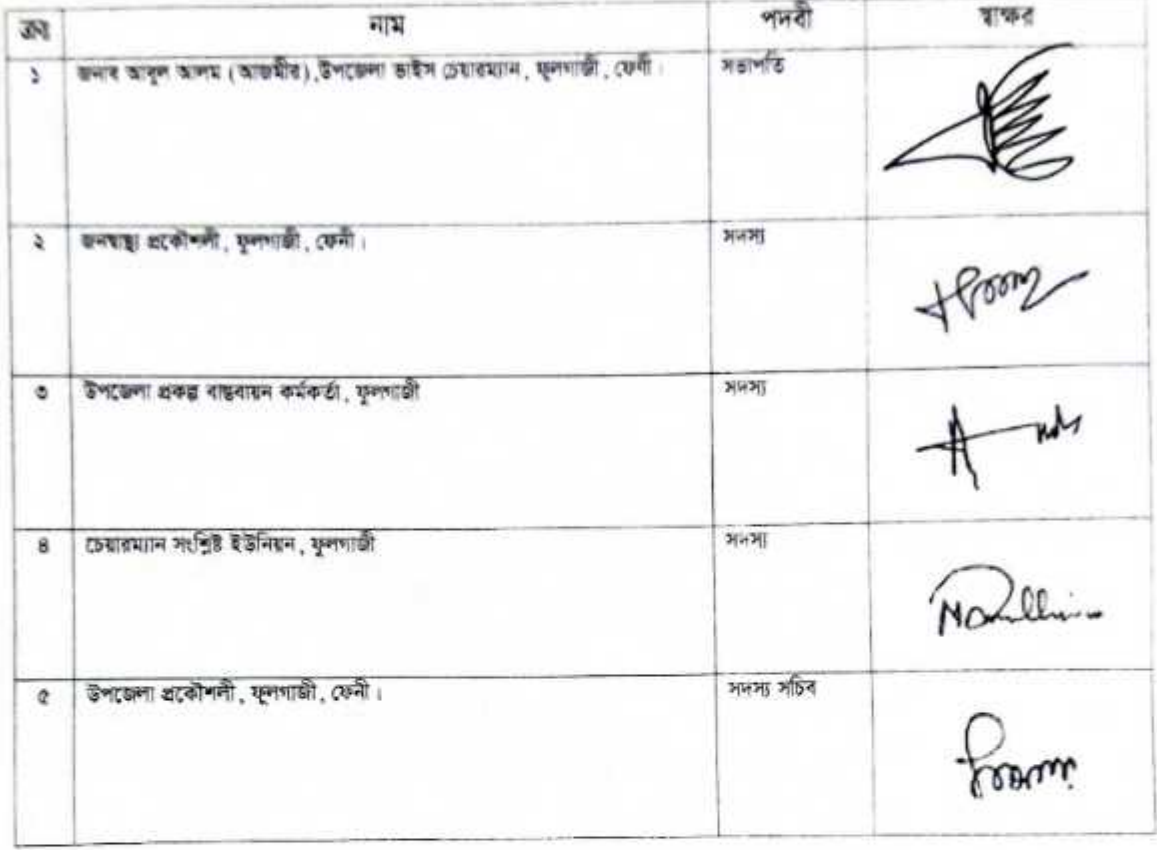 ক্রঃ নাম পদবী স্বাক্ষর
১ জনাব আবুল আলম (আজমীর),উপজেলা ভাইস চেয়ারম্যান, ফুলগাজী, ফেনী। সভাপতি
২ জনস্বাস্থ্য প্রকৌশলী, ফুলগাজী, ফেনী। সদস্য
৩ উপজেলা প্রকল্প বাস্তবায়ন কর্মকর্তা, ফুলগাজী সদস্য
৪ চেয়ারম্যান সংশ্লিষ্ট ইউনিয়ন, ফুলগাজী সদস্য
৫ উপজেলা প্রকৌশলী, ফুলগাজী, ফেনী। সদস্য সচিব